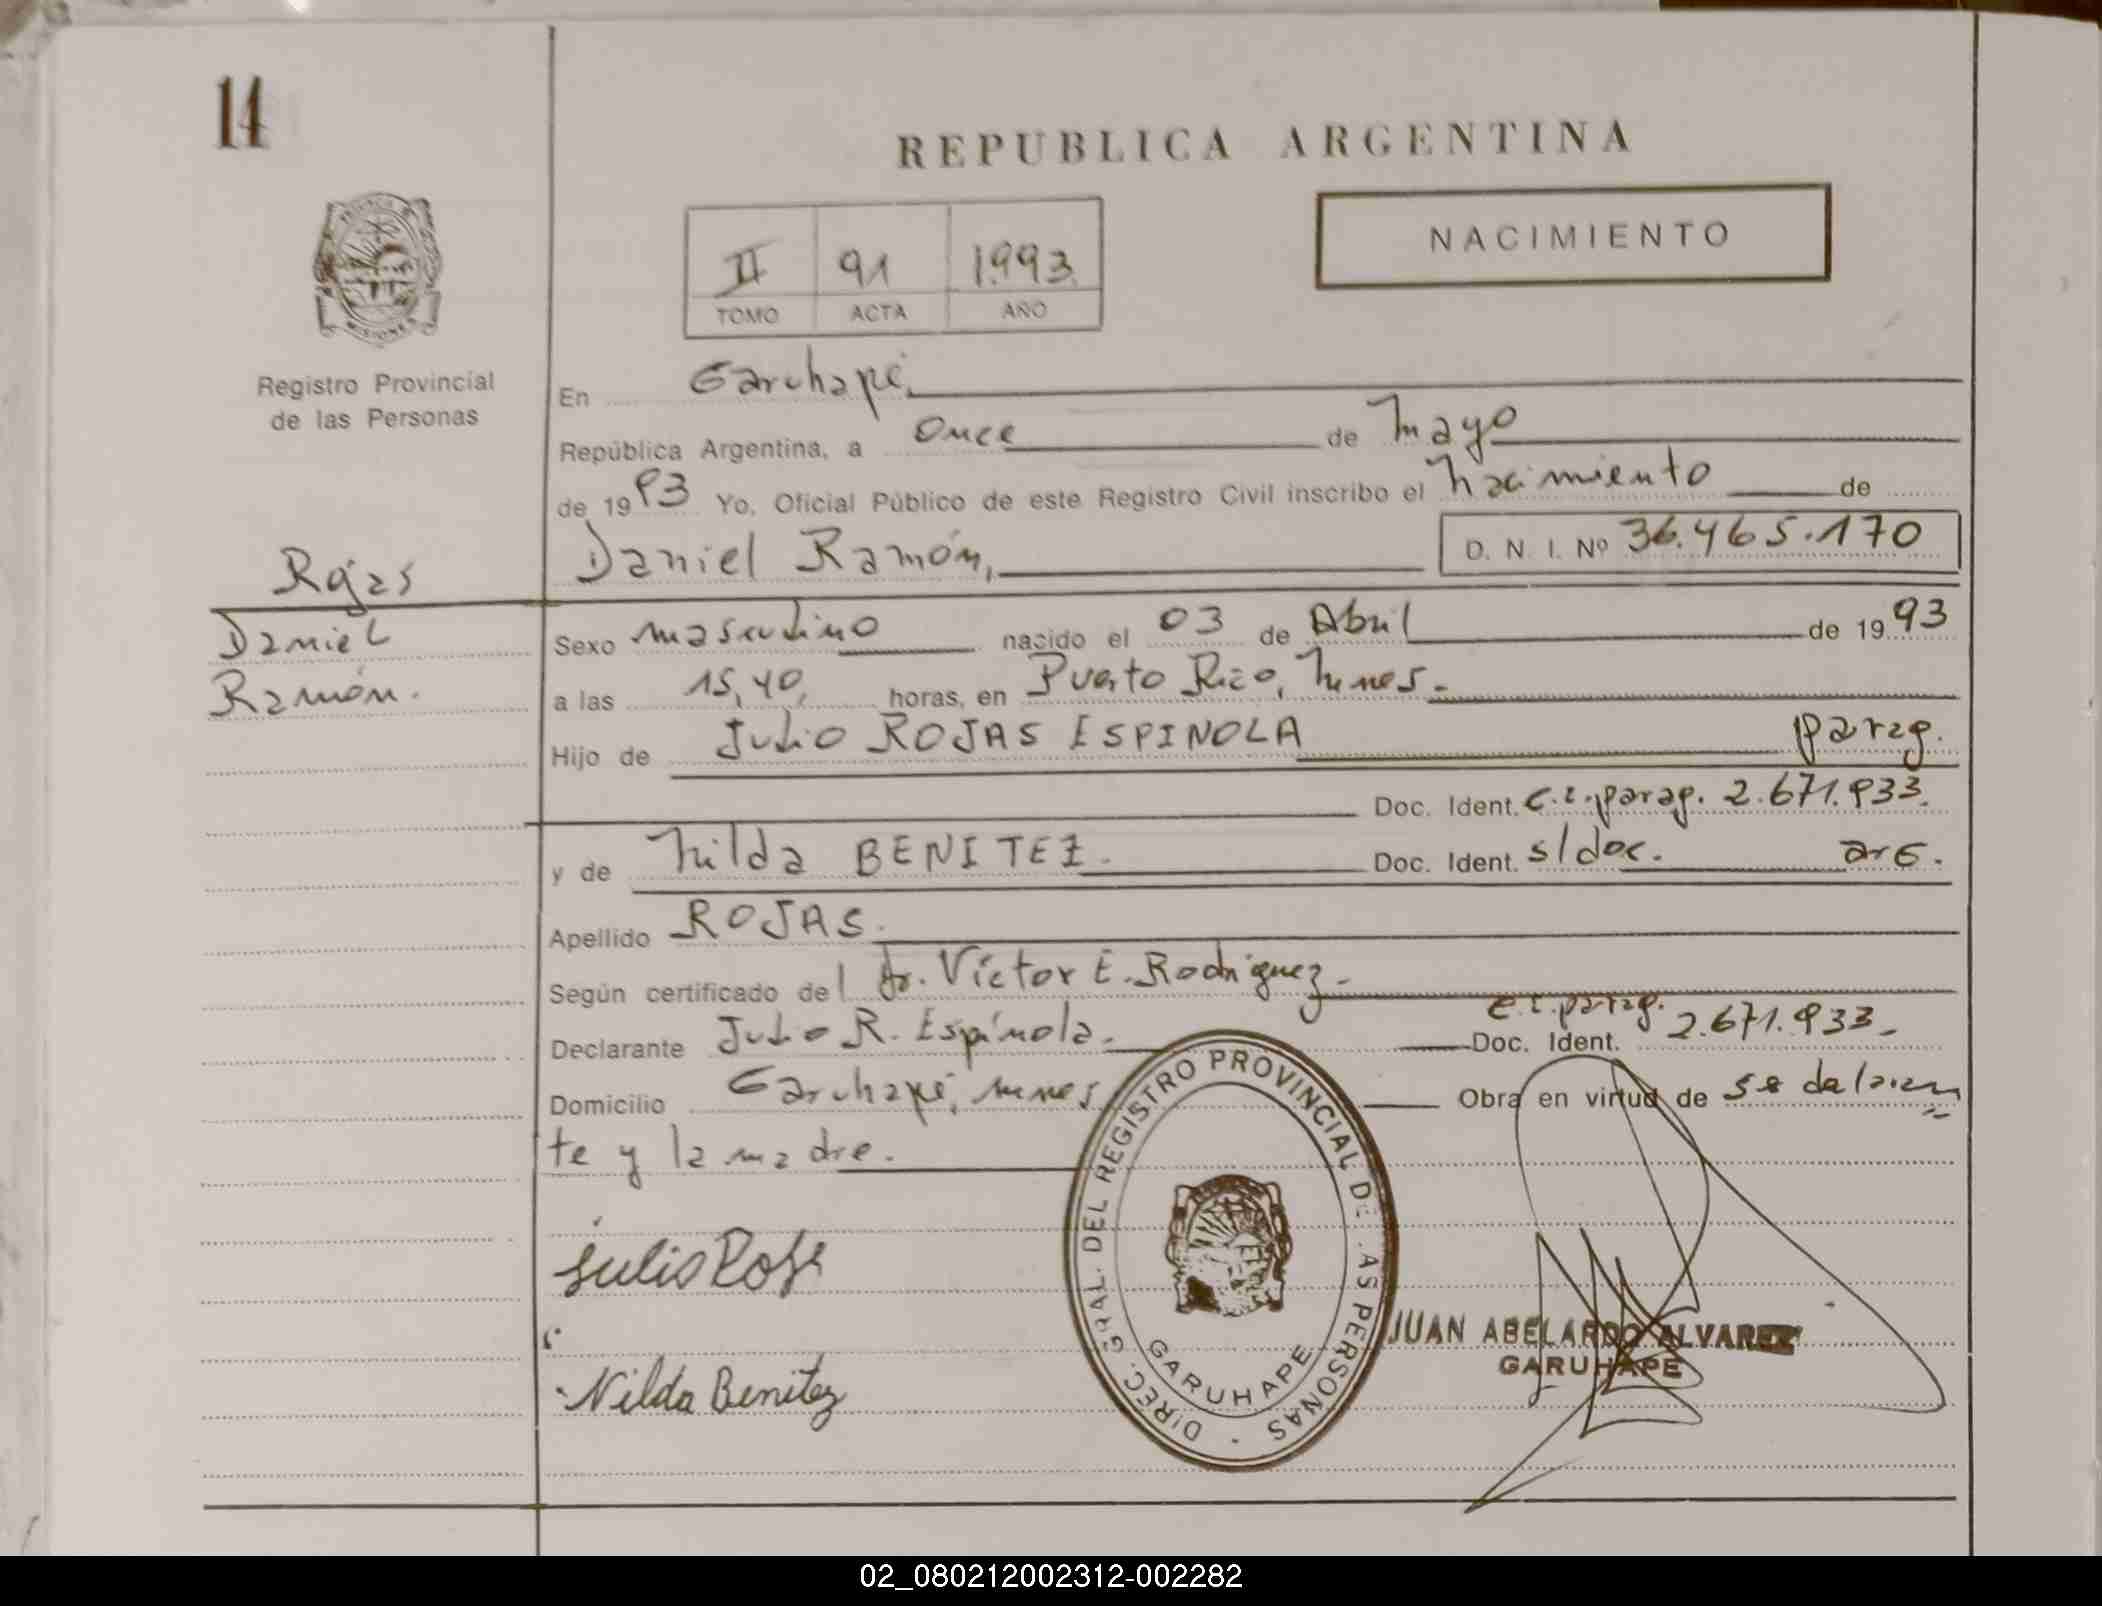 14
REPUBLICA ARGENTINA
NACIMIENTO
II 91 1.993
TOMO ACTA AÑO
MISIONES
Registro Provincial
de las Personas
En Garuhapé,
República Argentina, a Once de Mayo
de 1993 Yo, Oficial Público de este Registro Civil inscribo el Nacimiento de
Daniel Ramón, D. N. I. Nº 36.465.170
Rojas
Daniel
Ramón.
Sexo masculino nacido el 03 de Abril de 1993
a las 15,40, horas, en Puerto Rico, Mnes.-
Hijo de Julio ROJAS ESPINOLA parag.
Doc. Ident. C.I. parag. 2.671.933.
y de Nilda BENITEZ. Doc. Ident. s/doc. arg.
Apellido ROJAS.
Según certificado del Dr. Víctor E. Rodríguez.-
Declarante Julio R. Espínola. Doc. Ident. C.I. parag. 2.671.933.-
Domicilio Garuhapé, mnes Obra en virtud de
te y la madre.
DIREC. GRAL. DEL REGISTRO PROVINCIAL DE LAS PERSONAS -
GARUHAPE
Julio
Nilda Benitez
JUAN ABELARDO ALVAREZ
GARUHAPE
02_080212002312-002282